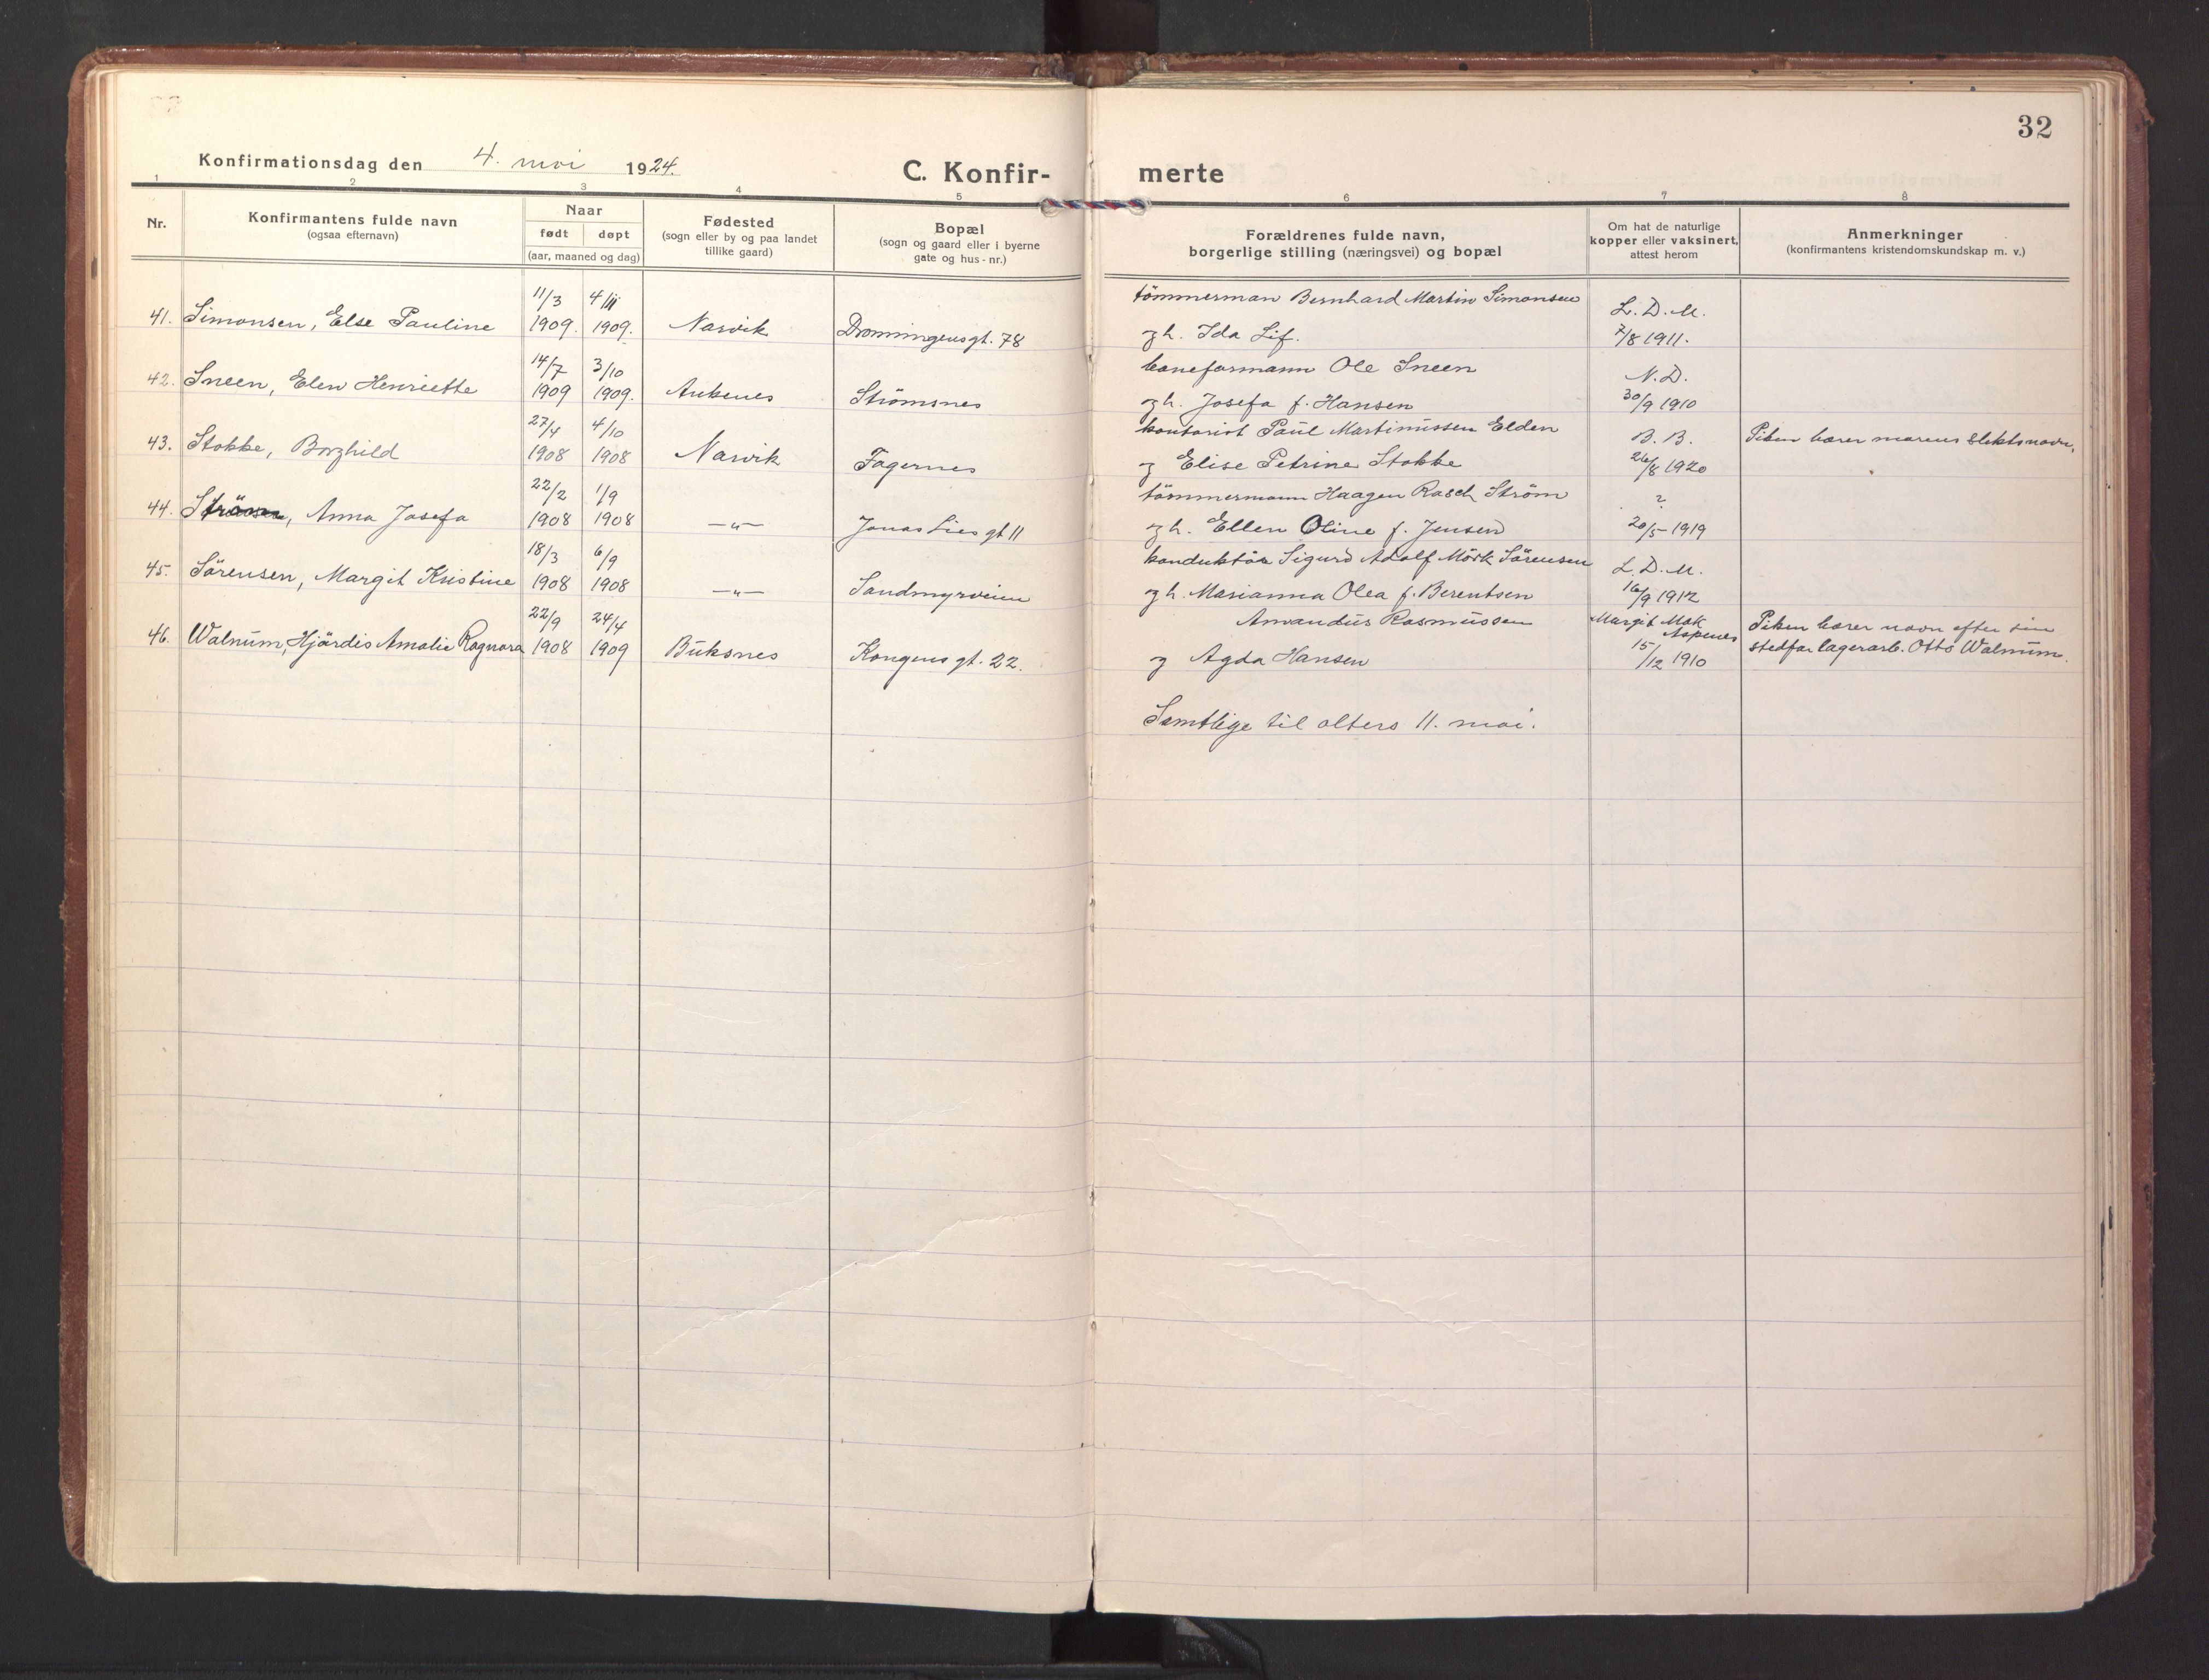 32
Konfirmationsdag den 4. mai 1924.
C. Konfir-
merte
1 2 3 4 5 6 7 8
Nr.
Konfirmantens fulde navn
(ogsaa efternavn)
Naar
født døpt
(aar, maaned og dag)
Fødested
(sogn eller by og paa landet
tillike gaard)
Bopæl
(sogn og gaard eller i byerne
gate og hus-nr.)
Forældrenes fulde navn,
borgerlige stilling (næringsvei) og bopæl
Om hat de naturlige
kopper eller vaksinert,
attest herom
Anmerkninger
(konfirmantens kristendomskundskap m. v.)
11/3 4/ tömmerman Bernhard Martin Simonsen L. D. M.
41. Simonsen, Else Pauline 1909. 1909. Narvik Dronningensgt. 78 og h. Ida Lif. 7/8 1911.
14/7 3/10 baneformann Ole Sneen N. D.
42. Sneen, Elen Henriette 1909 1909. Ankenes Strømsnes og h. Josefa f. Hansen 30/9 1910
27/4 4/10 kontorist Paul Martinussen Elden B. B. Piken bærer morens slektsnavn.
43. Stokke, Borghild 1908 1908 Narvik Fagernes og Elise Petrine Stokke 26/8 1920
22/2 1/9 tömmermann Haagen Rasch Strøm ?
44. Ström, Anna Josefa 1908 1908 —"— Jonas Lies gt 11 og h. Ellen Oline f. Jensen 20/5 1919
18/3 6/9 konduktör Sigurd Adolf Mörk Sörensen L. D. M.
45. Sörensen, Margit Kristine 1908 1908 —"— Sandmyrveien og h. Marianna Olea f. Berentsen 16/9 1912
22/9 24/4 Amandus Rasmussen Margit Mok Aspenes Piken bærer navn efter sin
46. Walnum, Hjördis Amalie Ragnora 1908 1909 Buksnes Kongens gt. 22. og Agda Hansen 15/12 1910 stedfar lagerarb. Otto Walnum.
Samtlige til alters 11. mai.